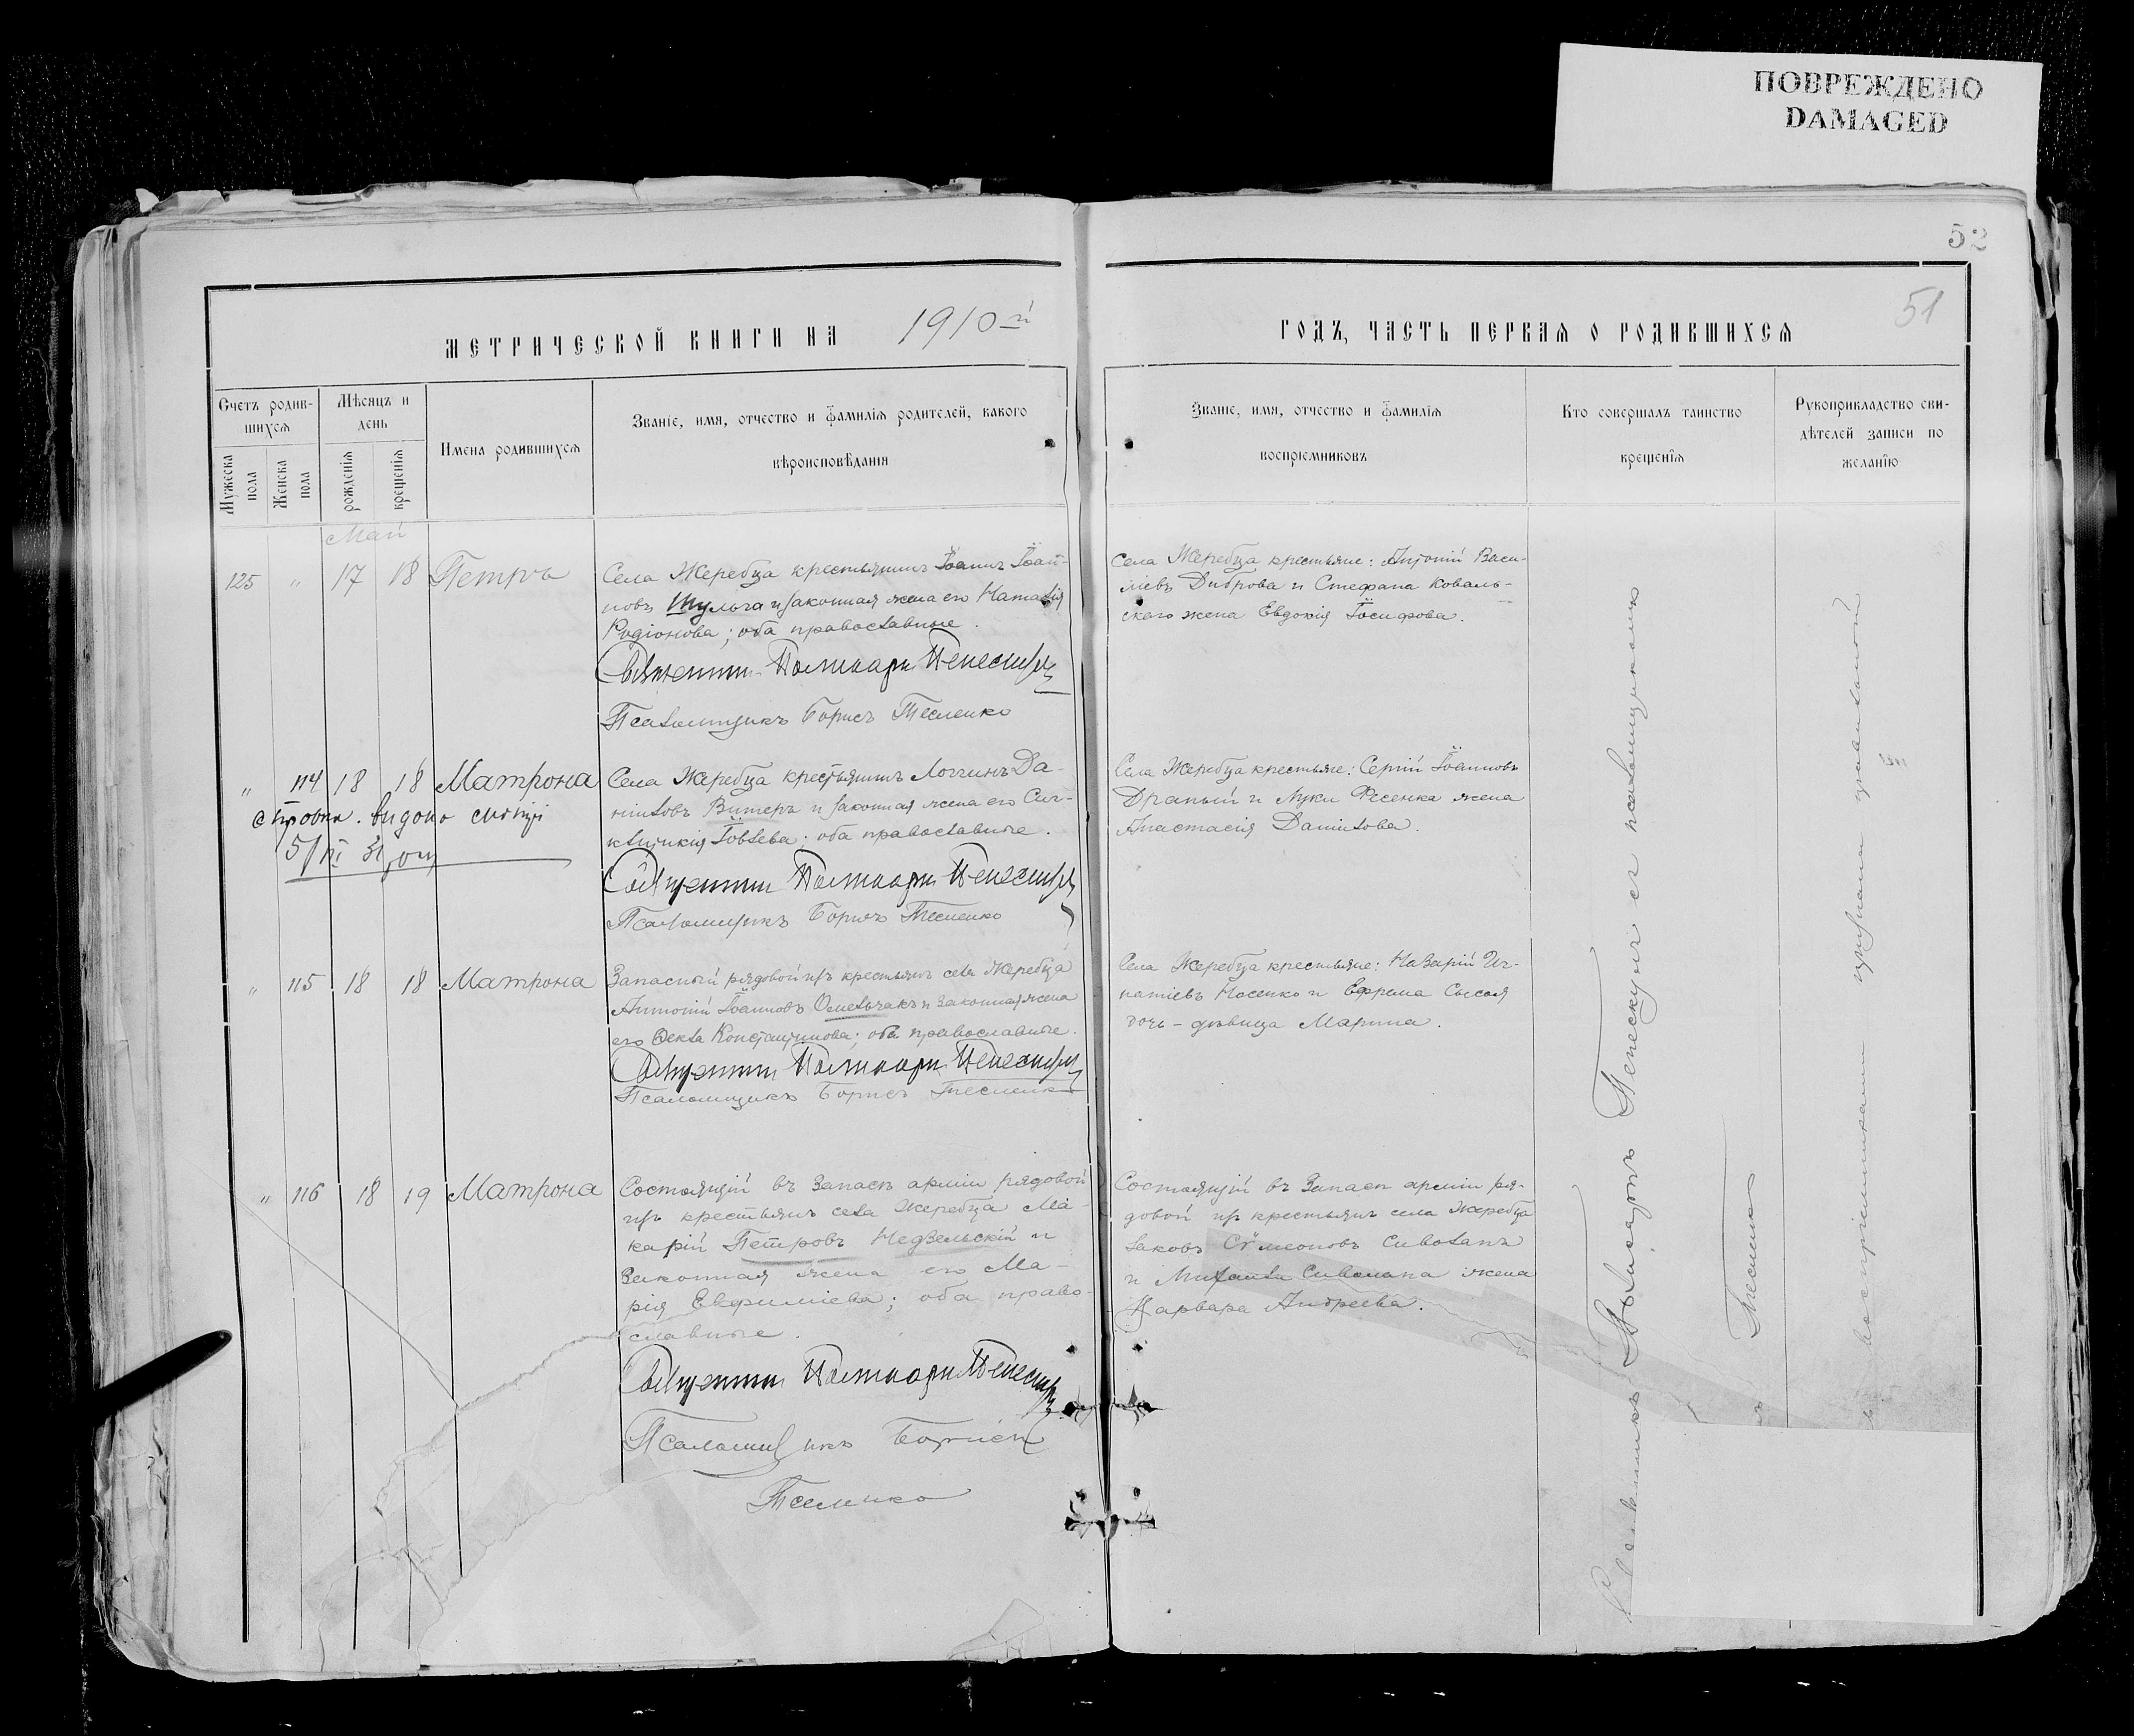 ПОВРЕЖДЕНО
DAMAGED
52
51
МЕТРИЧЕСКОЙ КНИГИ НА 1910-й
ГОДЪ, ЧАСТЬ ПЕРВАЯ О РОДИВШИХСЯ
Счетъ родив-
шихся
Мѣсяцъ и
день
Имена родившихся
Званіе, имя, отчество и фамилія родителей, какого
вѣроисповѣданія
Мужеска
пола
Женска
пола
рожденія
крещенія
Званіе, имя, отчество и фамилія
воспріемниковъ
Кто совершалъ таинство
крещенія
Рукоприкладство сви-
дѣтелей записи по
желанію
Май
125 " 17 18 Петръ
Села Жеребца крестьянинъ Іоаннъ Іоан-
новъ Шульга и законная жена его Наталія
Родіонова; оба православные.
Священникъ Поликарпъ Пепескулъ
Псаломщикъ Борисъ Тесленко
Села Жеребца крестьяне: Антоній Васи-
ліевъ Диброва и Стефана Коваль-
скаго жена Евдокія Іосифова.
" 114 18 18 Матрона
видано
Села Жеребца крестьянинъ Логгинъ Да-
ніиловъ Витеръ и законная жена его Син-
клитикія Іовлева; оба православные.
Священникъ Поликарпъ Пепескулъ
Псаломщикъ Борисъ Тесленко
Села Жеребца крестьяне: Сергій Іоанновъ
Драный и Луки Фесенка жена
Анастасія Даніилова.
" 115 18 18 Матрона
Запасный рядовой изъ крестьянъ села Жеребца
Антоній Іоанновъ Омельчакъ и законная жена
его Ѳекла Константинова; оба православные.
Священникъ Поликарпъ Пепескулъ
Псаломщикъ Борисъ Тесленко
Села Жеребца крестьяне: Назарій Иг-
натіевъ Носенко и Ефрема Сысоя
дочь - дѣвица Марина.
" 116 18 19 Матрона
Состоящій въ запасѣ арміи рядовой
изъ крестьянъ села Жеребца Ма-
карій Петровъ Недзельскій и
законная жена его Ма-
рія Евфиміева; оба право-
славные.
Священникъ Поликарпъ Пепескулъ
Псаломщикъ Борисъ
Тесленко
Состоящій въ запасѣ арміи ря-
довой изъ крестьянъ села Жеребца
Іаковъ Сѵмеоновъ Сиволапъ
и Михаила Сиволапа жена
Варвара Андреева.
Священникъ Поликарпъ Пепескулъ съ псаломщикомъ
Тесленко